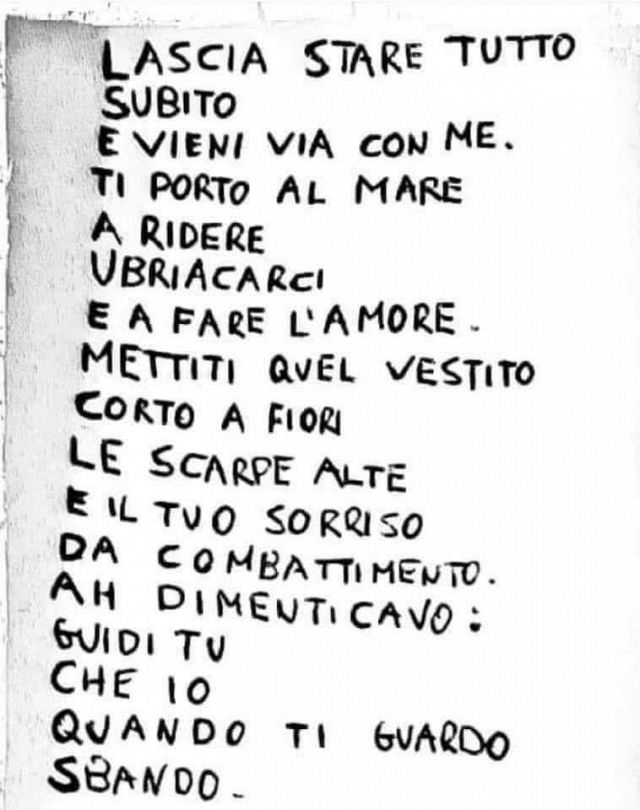 LASCIA STARE TUTTO
SUBITO
E VIENI VIA CON ME.
TI PORTO AL MARE
A RIDERE
UBRIACARCI
E A FARE L'AMORE.
METTITI QUEL VESTITO
CORTO A FIORI
LE SCARPE ALTE
E IL TUO SORRISO
DA COMBATTIMENTO.
AH DIMENTICAVO:
GUIDI TU
CHE IO
QUANDO TI GUARDO
SBANDO.